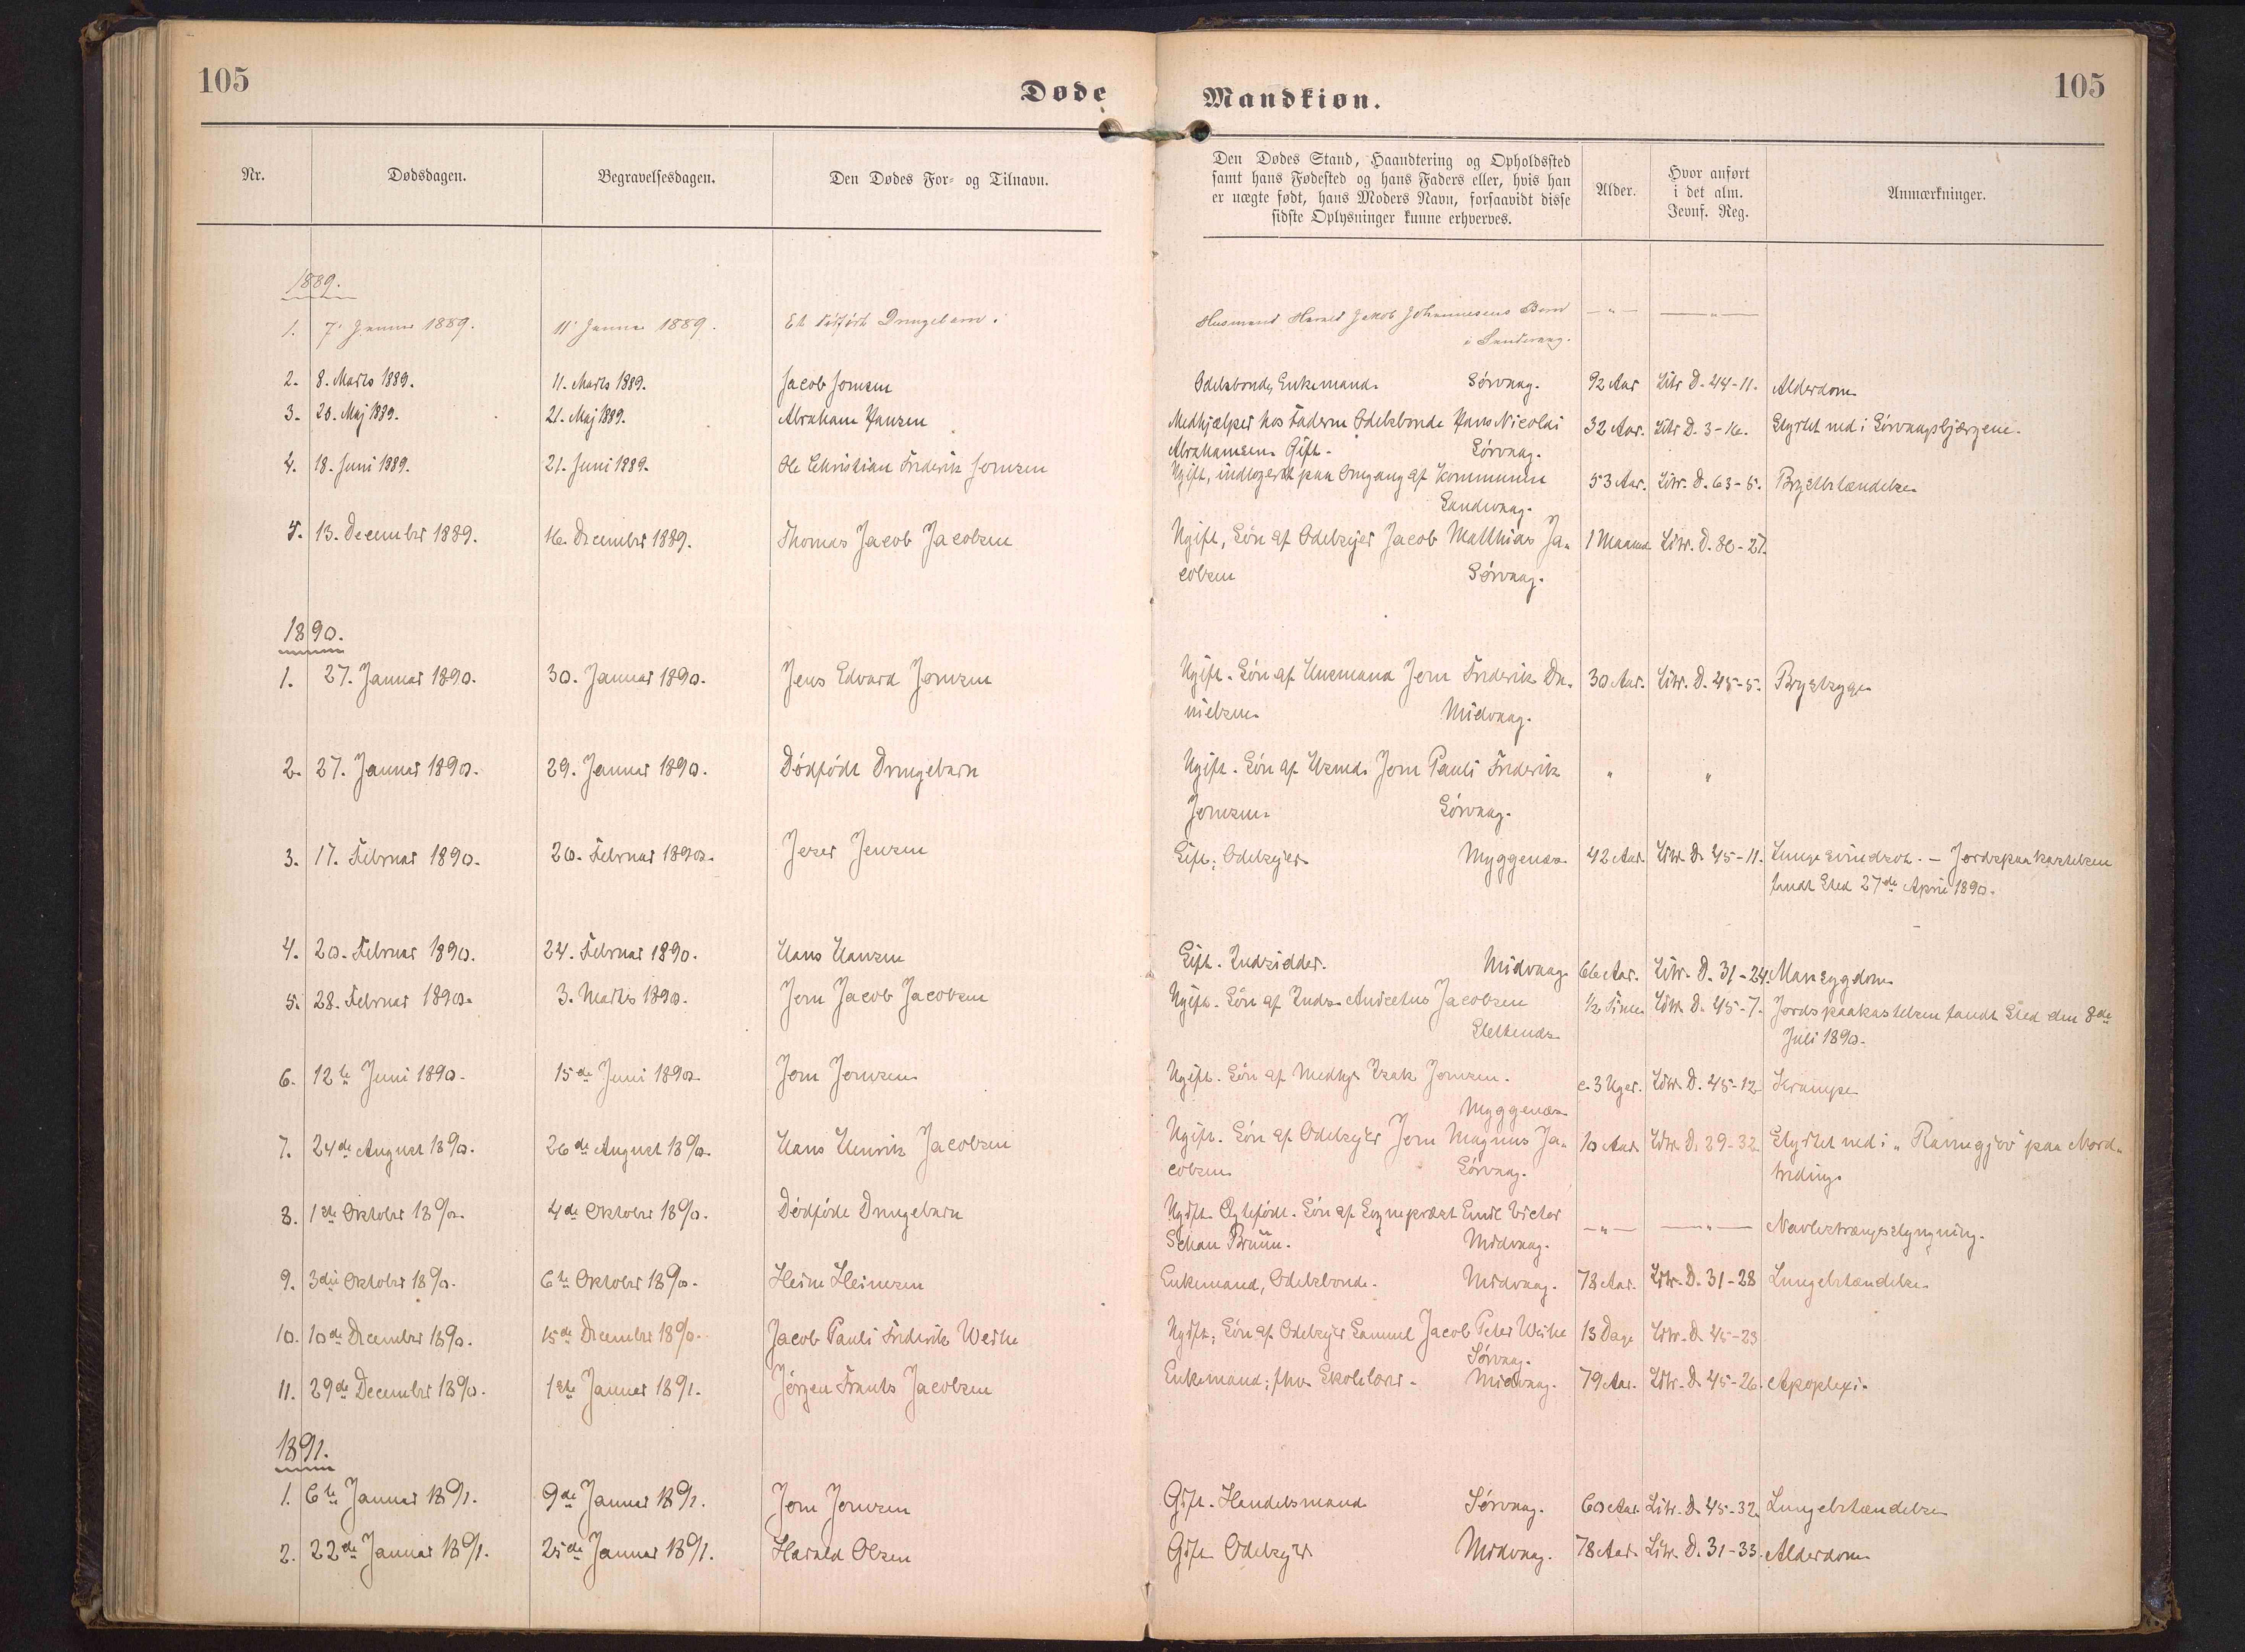 105
Døde
Mandkiøn.
105
Nr.
Dødsdagen.
Begravelsesdagen.
Den Dødes For- og Tilnavn.
Den Dødes Stand, Haandtering og Opholdssted
samt hans Fødested og hans Faders eller, hvis han
er uægte født, hans Moders Navn, forsaavidt disse
sidste Oplysninger kunne erhverves.
Alder.
Hvor anført
i det alm.
Jevnf. Reg.
Anmærkninger.
1889.
1. 7' Januar 1889. 11' Januar 1889. Et dødfødt Drengebarn. Husmand Harald Jakob Johannesens Barn — " — — " —
i Sandevaag.
2. 8. Marts 1889. 11. Marts 1889. Jacob Joensen Odelsbonde, Enkemand. Sørvaag. 92 Aar Litr D. 44-11. Alderdom
3. 20. Maj 1889. 21. Maj 1889. Abraham Hansen Medhjælper hos Faderen Odelsbonde Hans Nicolai 32 Aar. Litr D. 3-16. Styrtet ned i Sørvaagsbjærgene.
Abrahamsen. Gift. Sørvaag.
4. 18. Juni 1889. 21. Juni 1889. Ole Christian Frederik Joensen Ugift, indlogeret paa Omgang af Kommunen 53 Aar. Litr. D. 63-5. Brystbetændelse
Sandevaag.
5. 13. December 1889. 16. December 1889. Thomas Jacob Jacobsen Ugift, Søn af Odelsejer Jacob Matthias Ja- 1 Maaned Litr. D. 80-27.
cobsen Sørvaag.
1890.
1. 27. Januar 1890. 30. Januar 1890. Jens Edvard Joensen Ugift. Søn af Husmand Joen Frederik Da- 30 Aar. Litr. D. 45-5. Brystsyge
nielsen. Midvaag.
2. 27. Januar 1890. 29. Januar 1890. Dødfødt Drengebarn Ugift. Søn af Husmd. Joen Pauli Frederik " "
Joensen. Sørvaag.
3. 17. Februar 1890. 20. Februar 1890. Jeser Jensen Gift; Odelsejer Myggenæs 42 Aar. Litr. D. 45-11. Lungesvindsot. — Jordspaakastelsen
fandt Sted 27de April 1890.
4. 20. Februar 1890. 24. Februar 1890. Hans Hansen Gift. Indsidder. Midvaag. 66 Aar. Litr. D. 31-24. Mavesygdom
5. 28. Februar 1890. 3. Marts 1890. Joen Jacob Jacobsen Ugift. Søn af Inds. Anicetus Jacobsen ½ Time. Litr. D. 45-7. Jordspaakastelsen fandt Sted den 8de
Juli 1890.
6. 12te Juni 1890. 15de Juni 1890. Joen Joensen Ugift. Søn af Medhj. Isak Joensen. c. 3 Uger. Litr. D. 45-12 Krampe
Myggenæs
7. 24de August 1890. 26de August 1890. Hans Henrik Jacobsen Ugift. Søn af Odelsejer Joen Magnus Ja- 10 Aar Litr. D. 29-32 Styrtet ned i „Ramnegjov“ paa Nord-
cobsen. Sørvaag.
8. 1ste Oktober 1890. 4de Oktober 1890. Dødfødt Drengebarn Ugift. Ægtefødt. Søn af Sognepræst Emil Victor — " — — " — Navlestrængsslyngning.
Schau Bruun. Midvaag.
9. 3die Oktober 1890. 6te Oktober 1890. Heine Heinesen Enkemand, Odelsbonde. Midvaag. 78 Aar. Litr. D. 31-28 Lungebetændelse
10. 10de December 1890. 15de December 1890. Jacob Pauli Frederik Weihe Ugift; Søn af Odelsejer Samuel Jacob Peter Weihe 13 Dage Litr. D. 45-23
Sørvaag.
11. 29de December 1890. 1ste Januar 1891. Jørgen Frants Jacobsen Enkemand; fhv. Skolelærer. Midvaag. 79 Aar. Litr. D. 45-26. Apoplexi.
1891.
1. 6te Januar 1891. 9de Januar 1891. Joen Joensen Gift. Handelsmand Sørvaag. 60 Aar. Litr. D. 45-32. Lungebetændelse
2. 22de Januar 1891. 25de Januar 1891. Harald Olsen Gift Odelsejer Midvaag. 78 Aar. Litr. D. 31-33. Alderdom